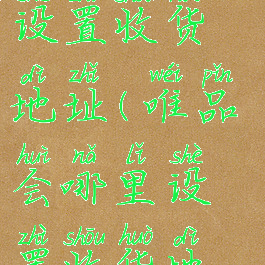 设置收货
dì zhǐ wéi pǐn
地址(唯品
huì nǎ lǐ shè
会哪里设
zhì shōu huò dì
置收货地